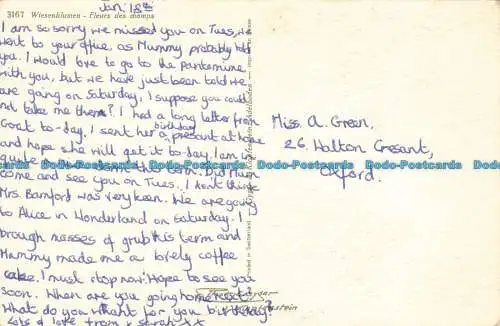 Jan. 18th
3167 Wiesenblumen - Fleurs des champs
I am so sorry we missed you on Tues, we
went to your office, as Mummy probably told
you. I would love to go to the Pantomine
with you, but we have just been told we
are going on Saturday. I suppose you could
not take me then? I had a long letter from
to-day. I sent her a birthday present at home
and hope she will get it to-day. I am
quite this term. Did Mum
come and see you on Tues. I don't think
Mrs. Bamford was very keen. We are going
to Alice in Wonderland on Saturday. I
brough masses of grub this term and
Mummy made me a lovely coffee
cake. I must stop now. Hope to see you
soon. When are you going home next?
What do you want for you birthday?
Lots of love from x Sarah XX
Miss A. Green,
26, Halton Cresant,
Oxford.
Printed in Switzerland
Dodo-Postcards Dodo-Postcards Dodo-Postcards Dodo-Postcards Dodo-Postcards